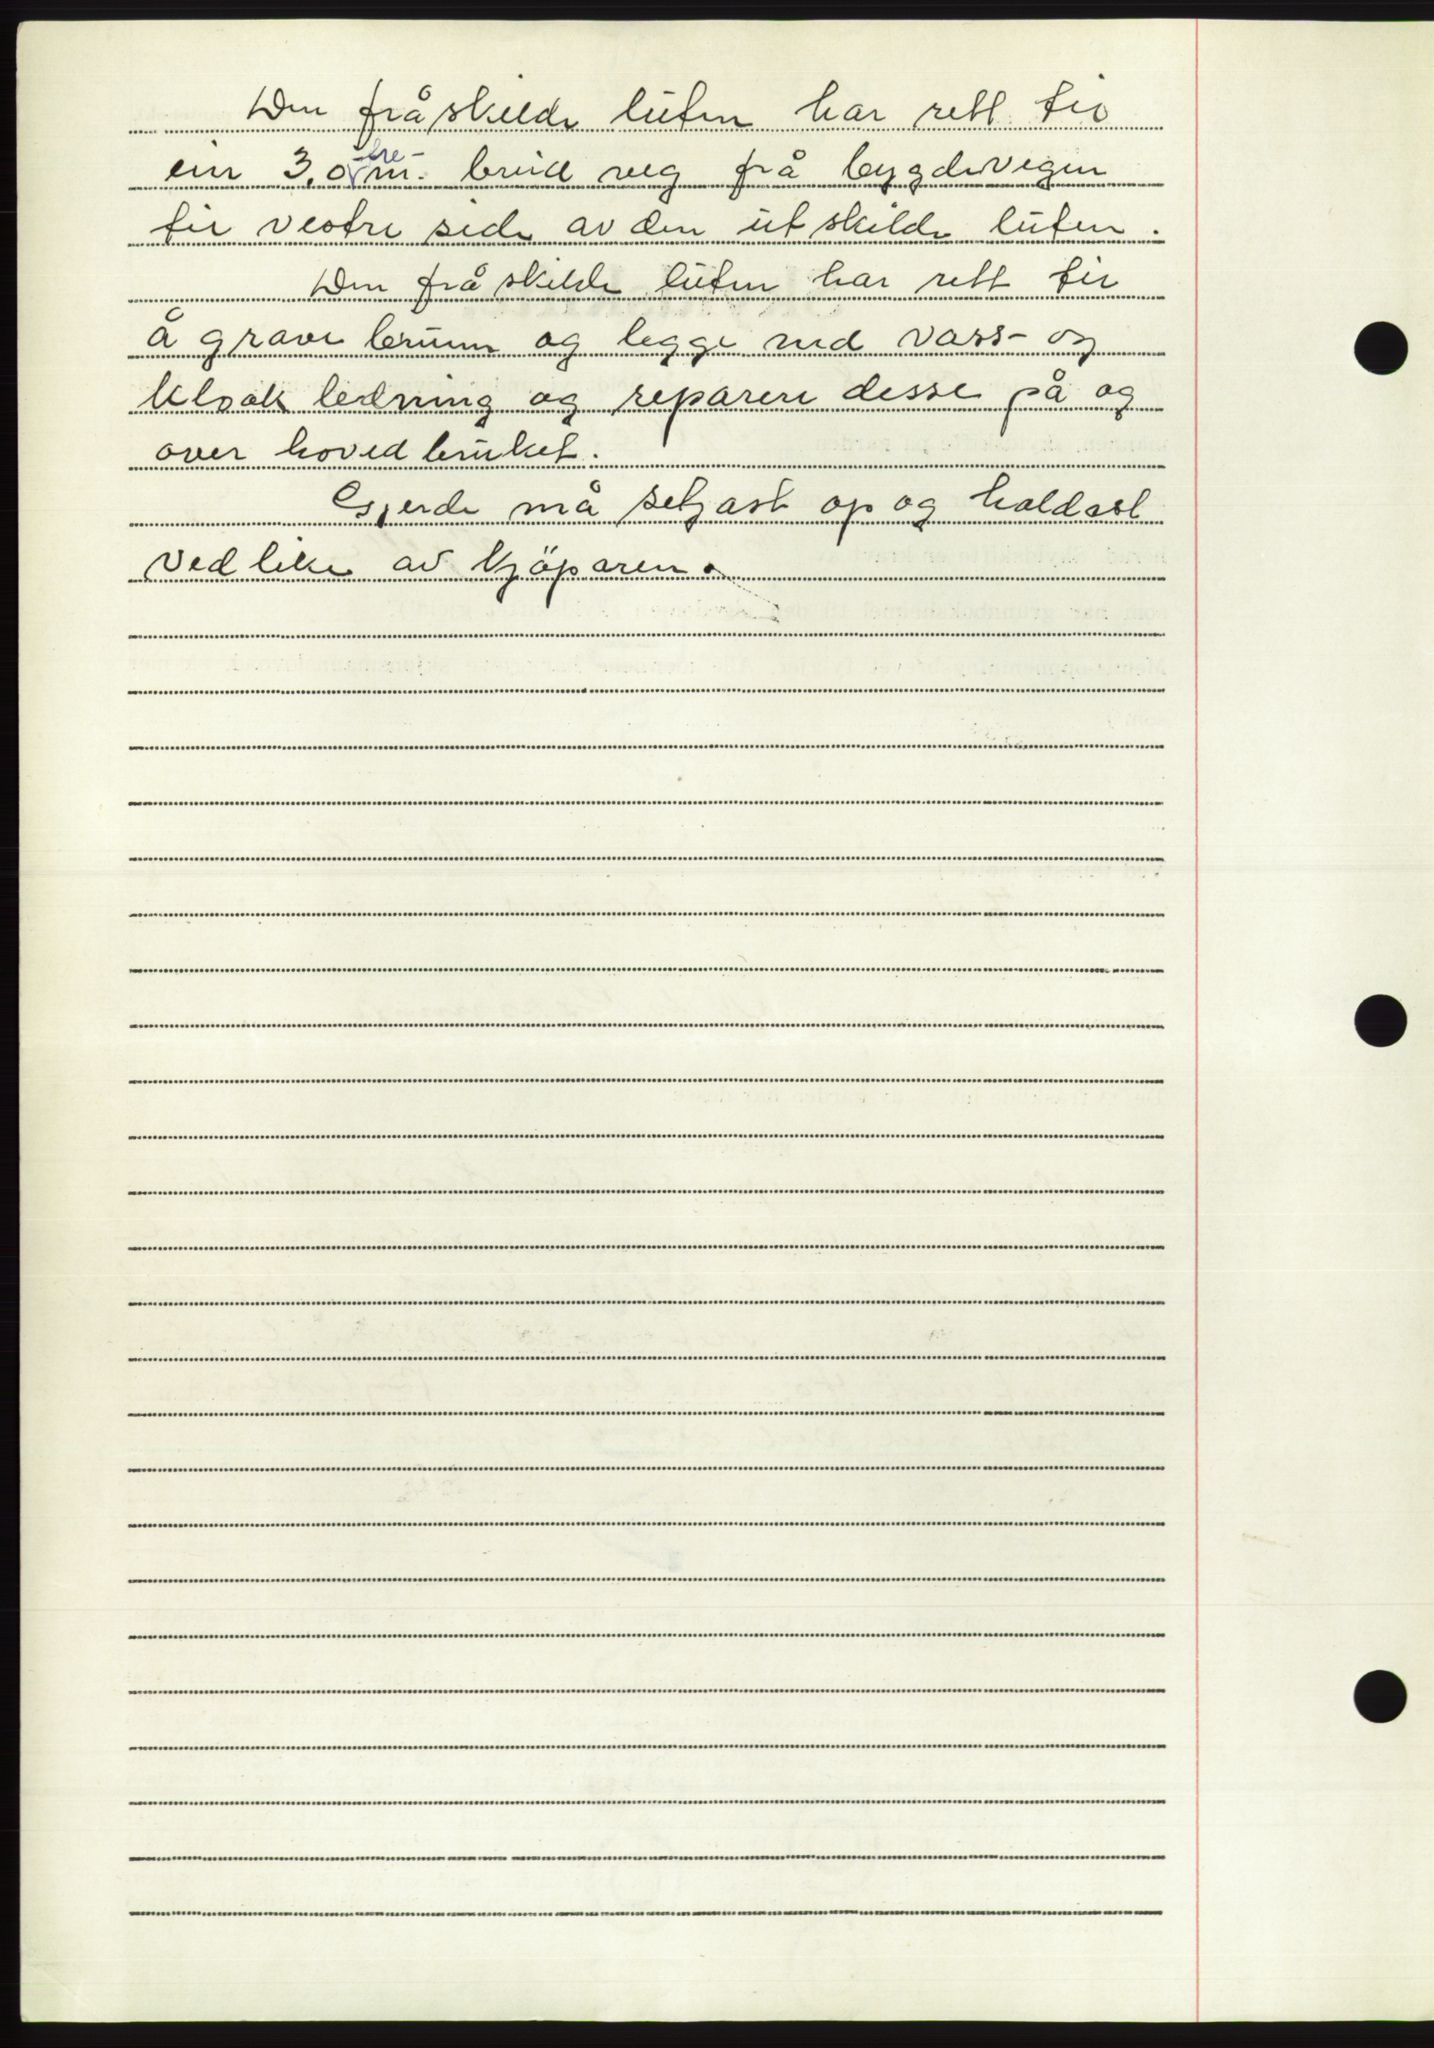 Den fråskilde luten har rett til
ein 3,0 -tre- m. breid veg frå bygdevegen
til vestre side av den utskilde luten.
Den fråskilde luten har rett til
å grave brunn og legge ned vass- og
kloakledning og reparere desse på og
over hovedbruket.
Gjerde må setjast op og haldast
vedlike av kjöparen.